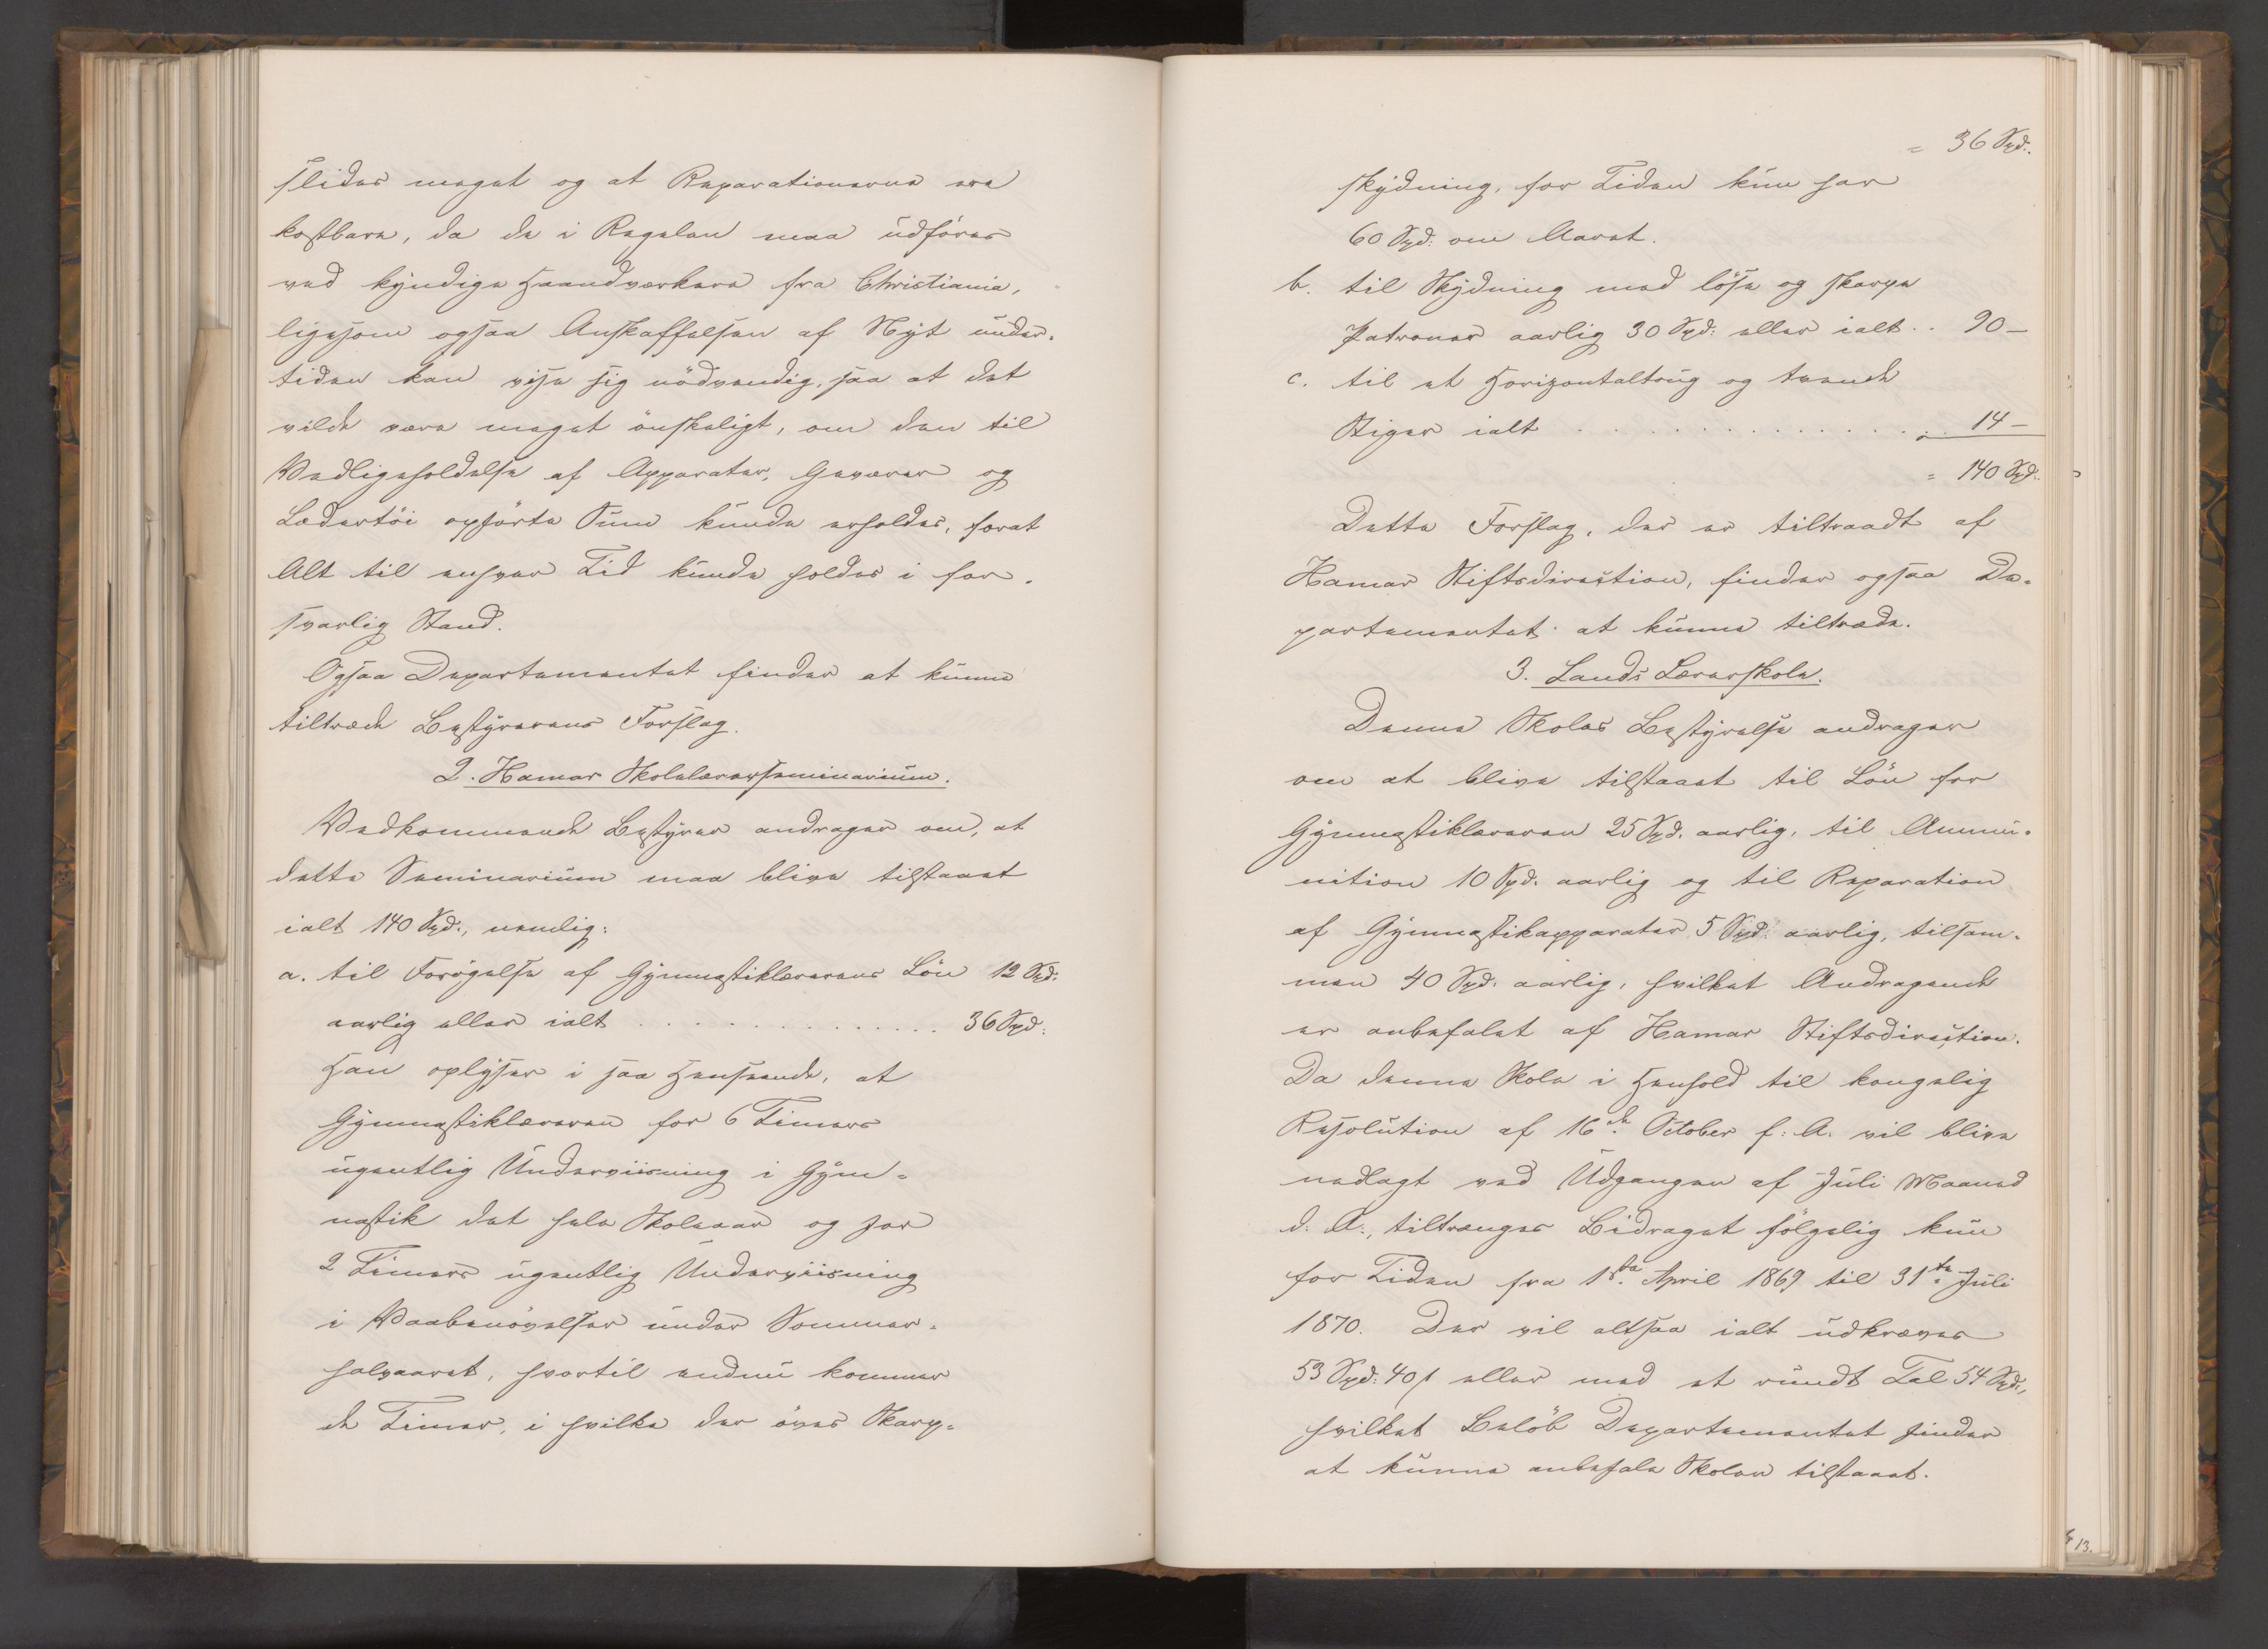 slides meget og at Reparationerne ere
kostbare, da de i Regelen maa udføres
ved kyndige Haandværkere fra Christiania,
ligesom ogsaa Anskaffelsen af Nyt under-
tiden kan vise sig nödvendig, saa at det
vilde være meget önskeligt, om den til
Vedligeholdelse af Apparater, Geværer og
Lædertöi opförte Sum kunde erholdes, forat
Alt til enhver Tid kunde holdes i for-
svarlig Stand.
Ogsaa Departementet finder at kunne
tiltræde Bestyrerens Forslag.
2. Hamar Skolelærerseminarium.
Vedkommende Bestyrer andrager om, at
dette Seminarium maa blive tilstaaet
ialt 140 Spd:, nemlig:
a. til Forögelse af Gymnastiklærerens Lön 12 Spd:
aarlig eller ialt . . . . . . . . . . . . . . 36 Spd:
Han oplyser i saa Henseende, at
Gymnastiklæreren for 6 Timers
ugentlig Underviisning i Gym-
nastik det hele Skoleaar og for
2 Timers ugentlig Underviisning
i Vaabenövelser under Sommer-
halvaaret, hvortil endnu kommer
de Timer, i hvilke der öves Skarp-
= 36 Spd:
skydning, for Tiden kun har
60 Spd: om Aaret.
b. til Skydning med löse og skarpe
Patroner aarlig 30 Spd: eller ialt . . 90 –
c. til et Horizontaltoug og tvende
Stiger ialt . . . . . . . . . . . . . 14 –
= 140 Spd:
Dette Forslag, der er tiltraadt af
Hamar Stiftsdirection, finder ogsaa De-
partementet at kunne tiltræde.
3. Lands Lærerskole.
Denne Skoles Bestyrelse andrager
om at blive tilstaaet til Lön for
Gymnastiklæreren 25 Spd. aarlig, til Ammu-
nition 10 Spd. aarlig og til Reparation
af Gymnastikapparater 5 Spd: aarlig, tilsam-
men 40 Spd: aarlig, hvilket Andragende
er anbefalet af Hamar Stiftsdirection.
Da denne Skole i Henhold til kongelig
Resolution af 16de October f: A. vil blive
nedlagt ved Udgangen af Juli Maaned
d: A:, tiltrænges Bidraget fölgelig kun
for Tiden fra 1ste April 1869 til 31te Juli
1870. Der vil altsaa ialt udkræves
53 Spd: 40 ſ eller med et rundt Tal 54 Spd:,
hvilket Belöb Departementet finder
at kunne anbefale Skolen tilstaaet.
13.